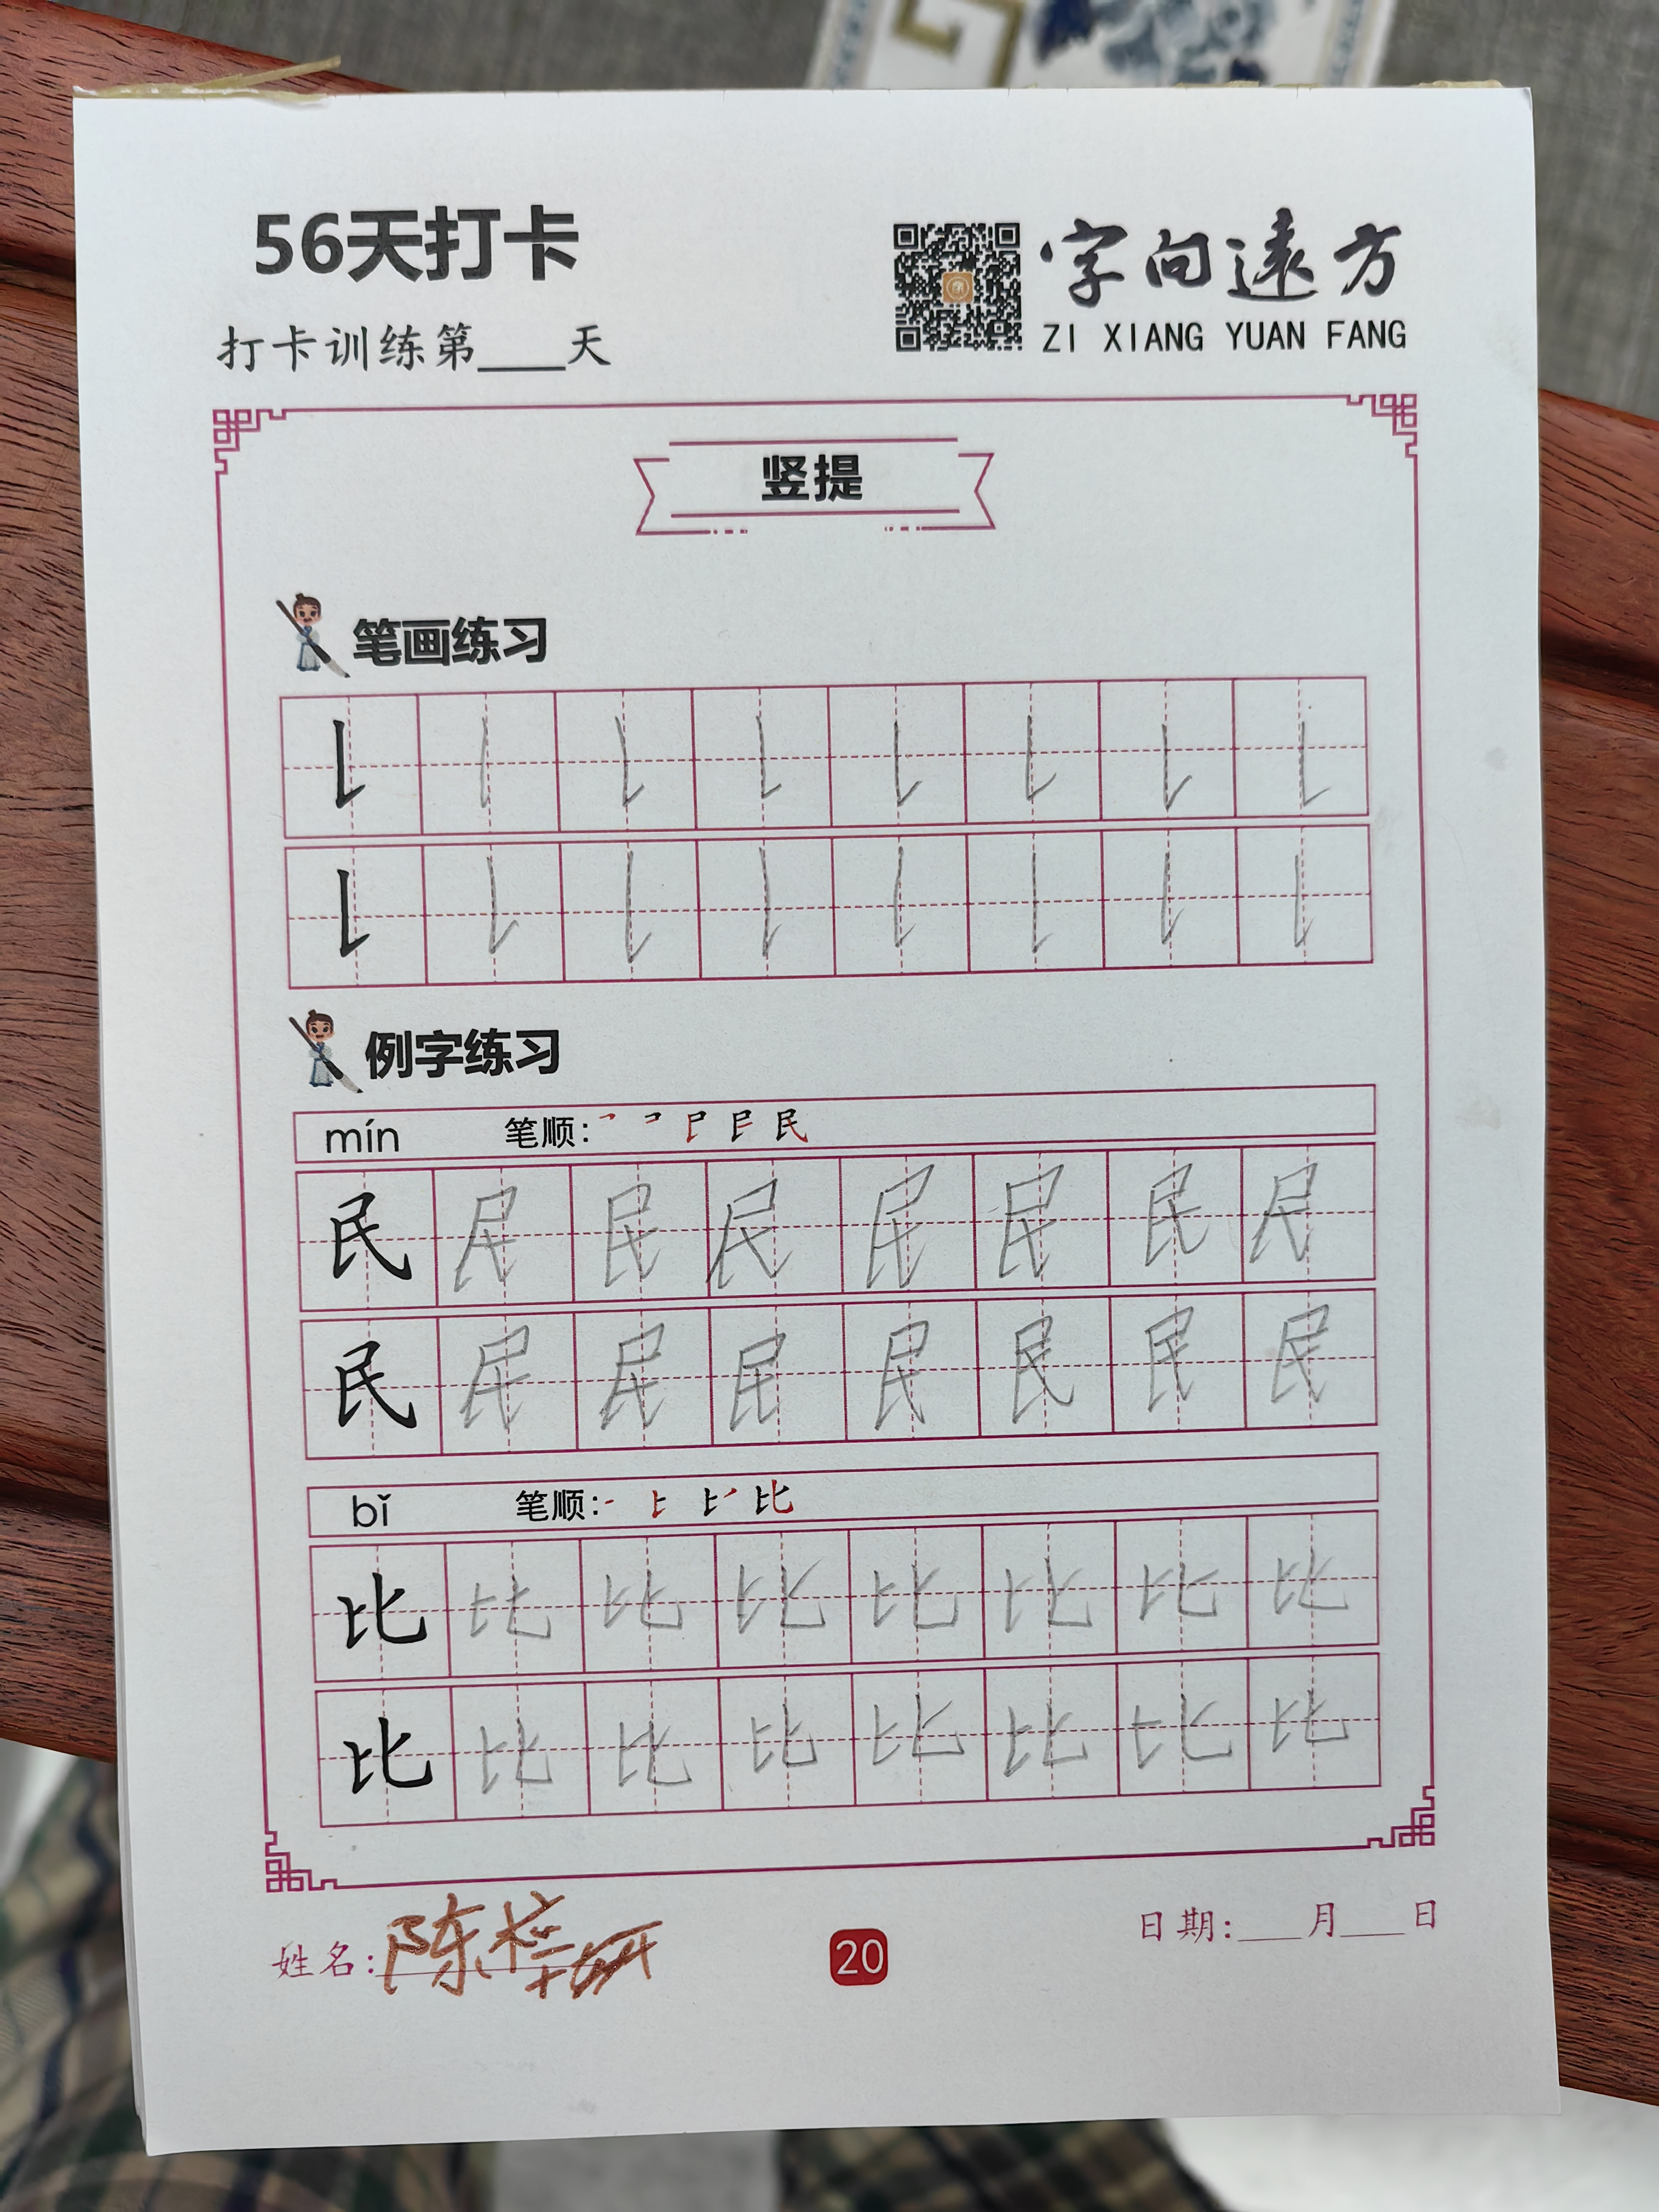 56天打卡
字向遠方
ZI XIANG YUAN FANG
打卡训练第____天
竖提
笔画练习
例字练习
mín 笔顺: 民
民 民 民 民 民 民 民 民
民 民 民 民 民 民 民 民
bǐ 笔顺: 比
比 比 比 比 比 比 比 比
比 比 比 比 比 比 比 比
姓名: 陈
20
日期:___月___日